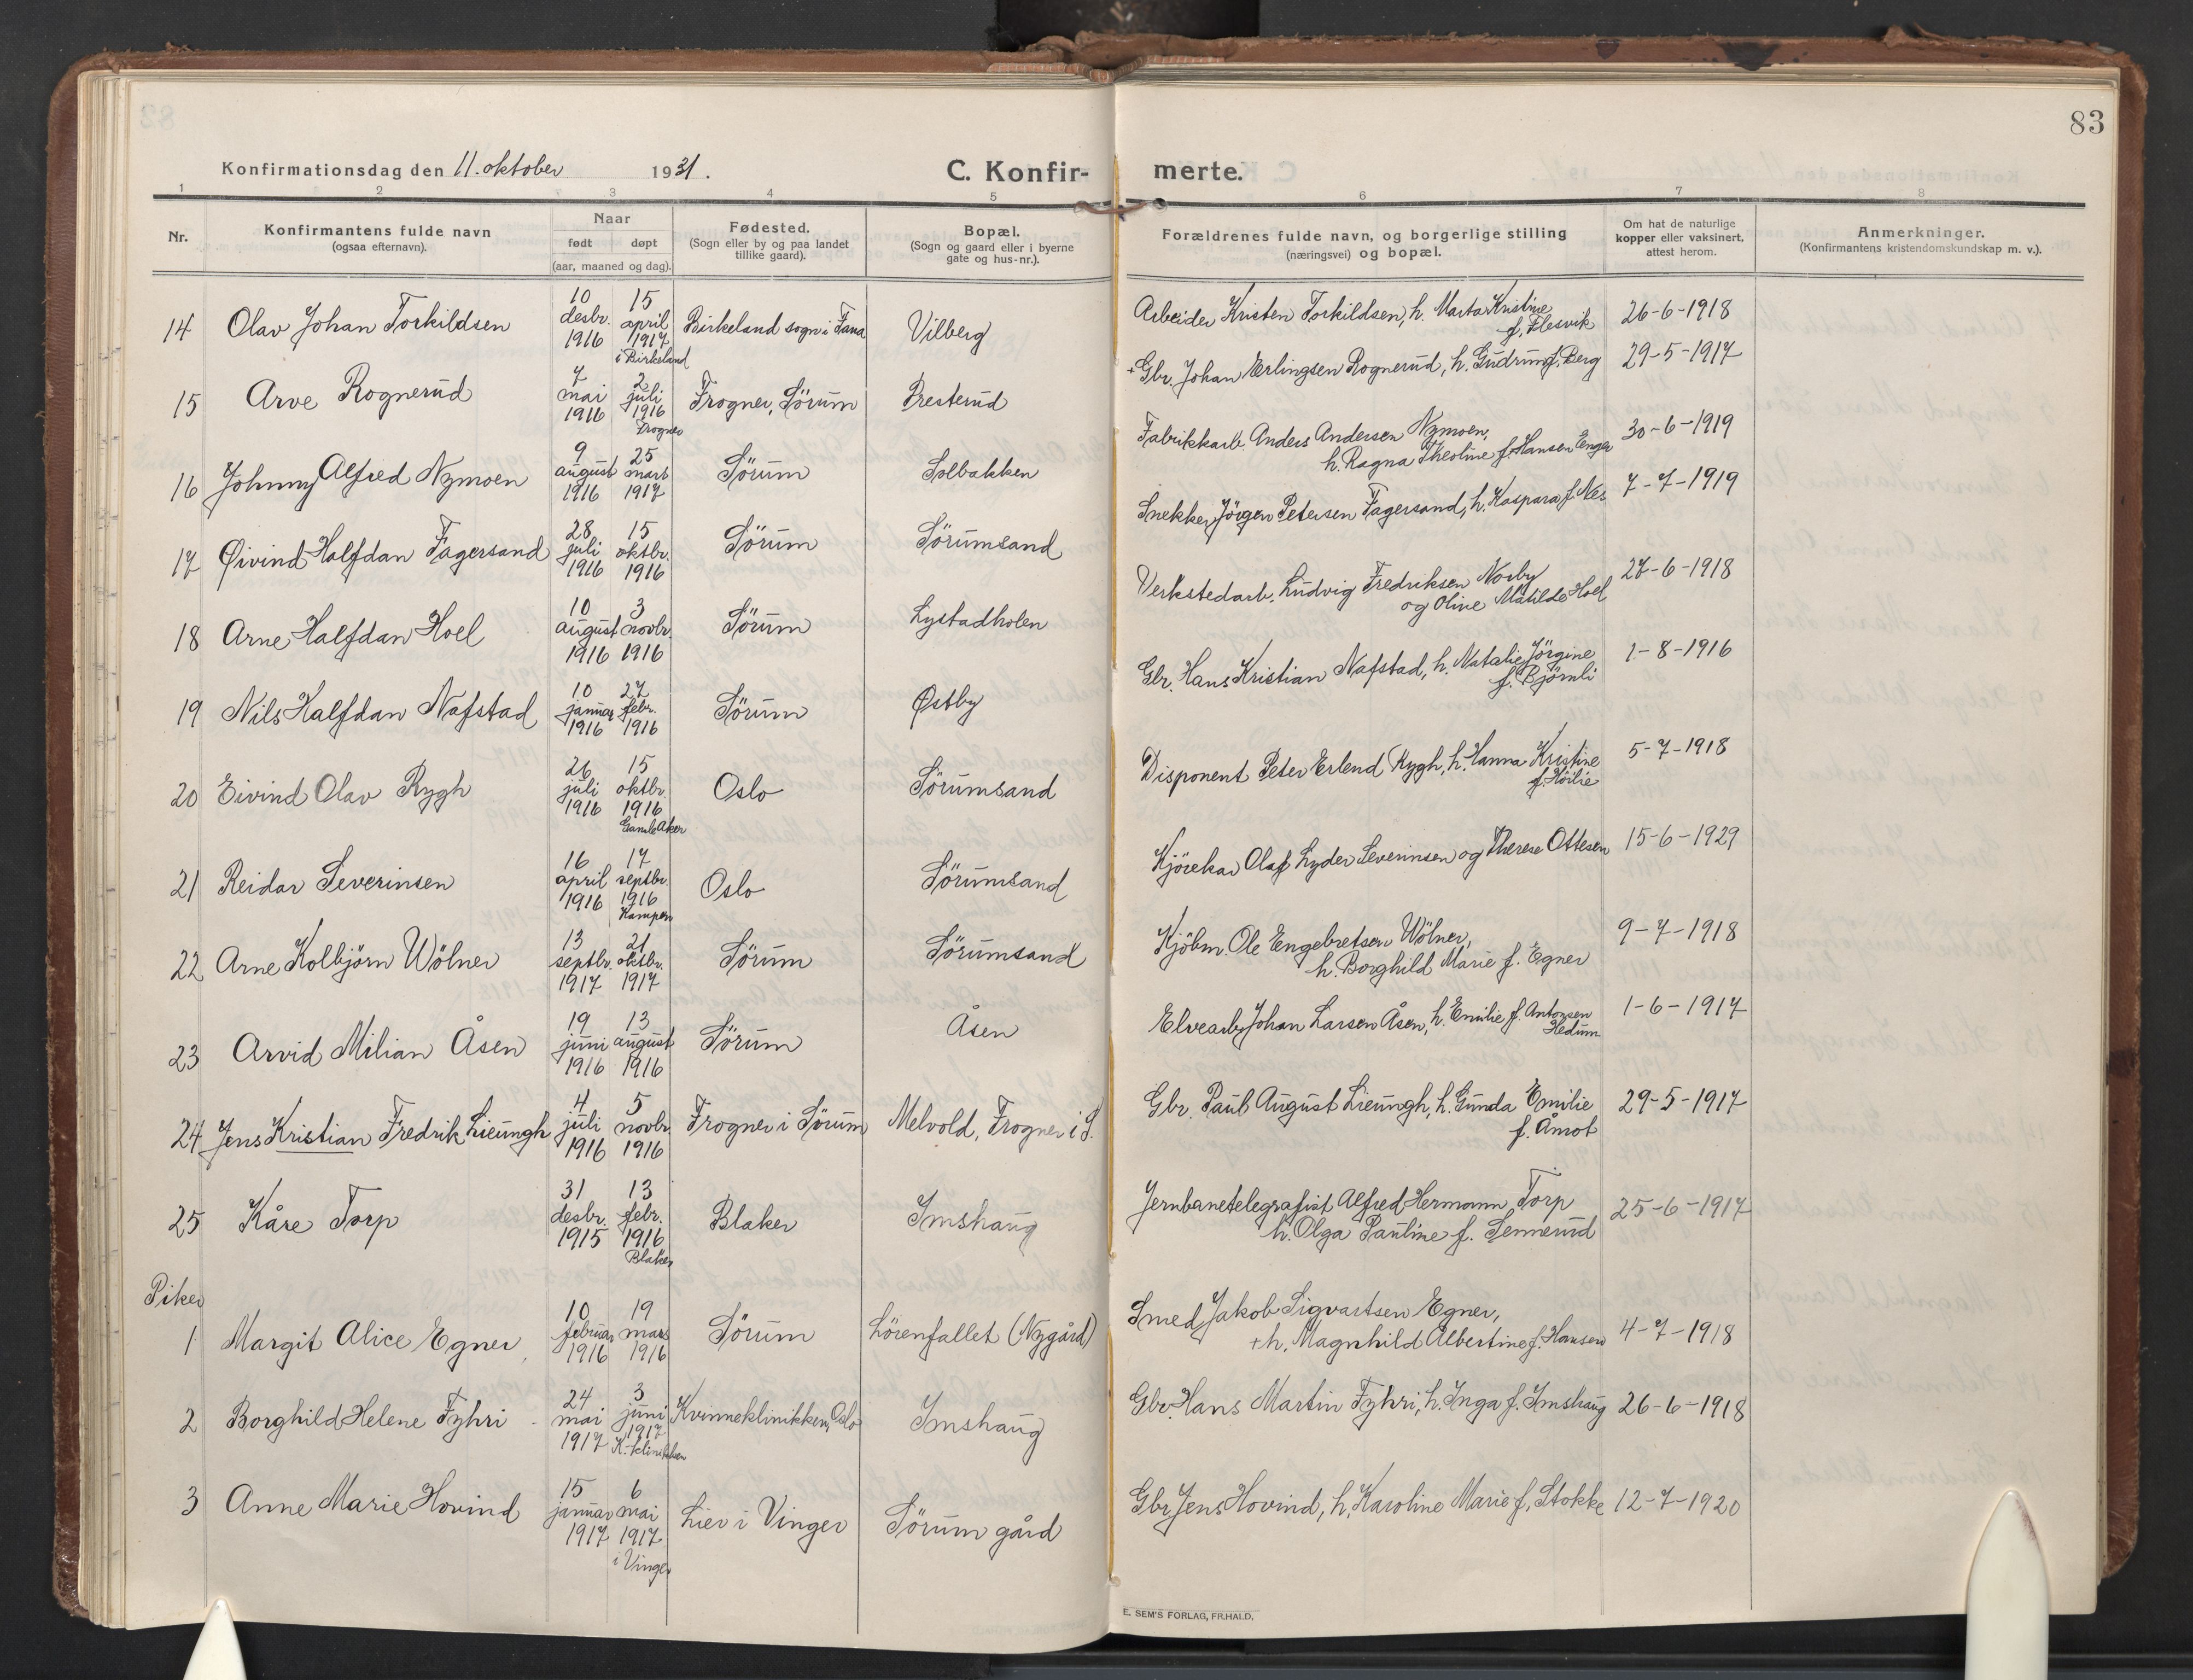 83
Konfirmationsdag den 11. oktober 1931. C. Konfir- merte.
1 2 3 4 5 6 7 8
Nr.
Konfirmantens fulde navn
(ogsaa efternavn).
Naar
født døpt
(aar, maaned og dag).
Fødested.
(Sogn eller by og paa landet
tillike gaard).
Bopæl.
(Sogn og gaard eller i byerne
gate og hus-nr.).
Forældrenes fulde navn, og borgerlige stilling
(næringsvei) og bopæl.
Om hat de naturlige
kopper eller vaksinert,
attest herom.
Anmerkninger.
(Konfirmantens kristendomskundskap m. v.).
14 Olav Johan Torkildsen
10 desbr. 1916
15 april 1917 i Birkeland
Birkeland sogn i Fana
Vilberg
Arbeider Kristen Torkildsen, h. Marta Kristine
f. Flesvik
26-6-1918
15 Arve Rognerud
7 mai 1916
2 juli 1916 Frogner
Frogner, Sörum
Presterud
+ Gbr. Johan Erlingsen Rognerud, h. Gudrun f. Berg
29-5-1917
16 Johnny Alfred Nymoen
9 august 1916
25 mars 1917
Sörum
Solbakken
Fabrikkarb. Anders Andersen Nymoen,
h. Ragna Theoline f. Hansen Enga
30-6-1919
17 Øivind Halfdan Fagersand
28 juli 1916
15 oktbr. 1916
Sörum
Sörumsand
Snekker Jörgen Petersen Fagersand, h. Kaspara f. Nes
7-7-1919
18 Arne Halfdan Hoel
10 august 1916
3 novbr. 1916
Sörum
Lystadholen
Verkstedarb. Ludvig Fredriksen Norby
og Oline Matilde Hoel
27-6-1918
19 Nils Halfdan Nafstad
10 januar 1916
27 febr. 1916
Sörum
Østby
Gbr. Hans Kristian Nafstad, h. Natalie Jörgine
f. Björnli
1-8-1916
20 Eivind Olav Rygh
26 juli 1916
15 oktbr. 1916 Gamle Aker
Oslo
Sörumsand
Disponent Peter Erlend Rygh, h. Hanna Kristine
f. Höilie
5-7-1918
21 Reidar Severinsen
16 april 1916
17 septbr. 1916 Kampen
Oslo
Sörumsand
Kjörekar Olaf Lyder Severinsen og Therese Ottesen
15-6-1929
22 Arne Kolbjörn Wölner
13 septbr. 1917
21 oktbr. 1917
Sörum
Sörumsand
Kjöbm. Ole Engebretsen Wölner,
h. Borghild Marie f. Egner
9-7-1918
23 Arvid Milian Åsen
19 juni 1916
13 august 1916
Sörum
Åsen
Elvearb. Johan Larsen Åsen, h. Emilie f. Antonsen
Hedum
1-6-1917
24 Jens Kristian Fredrik Lieungh
4 juli 1916
5 novbr. 1916
Frogner i Sörum
Melvold, Frogner i S.
Gbr. Paul August Lieungh, h. Gunda Emilie
f. Åmot
29-5-1917
25 Kåre Torp
31 desbr. 1915
13 febr. 1916 Blaker
Blaker
Imshaug
Jernbanetelegrafist Alfred Hermann Torp
h. Olga Pauline f. Sennerud
25-6-1917
Piker
1 Margit Alice Egner
10 februar 1916
19 mars 1916
Sörum
Lörenfallet (Nygård)
Smed Jakob Sigvartsen Egner,
+ h. Magnhild Albertine f. Hansen
4-7-1918
2 Borghild Helene Fyhri
24 mai 1917
3 juni 1917 K.-klinikken
Kvinneklinikken, Oslo
Imshaug
Gbr. Hans Martin Fyhri, h. Inga f. Imshaug
26-6-1918
3 Anne Marie Hovind
15 januar 1917
6 mai 1917 i Vinger
Lier i Vinger
Sörum gård
Gbr. Jens Hovind, h. Karoline Marie f. Stokke
12-7-1920
E. SEM'S FORLAG, FR.HALD.